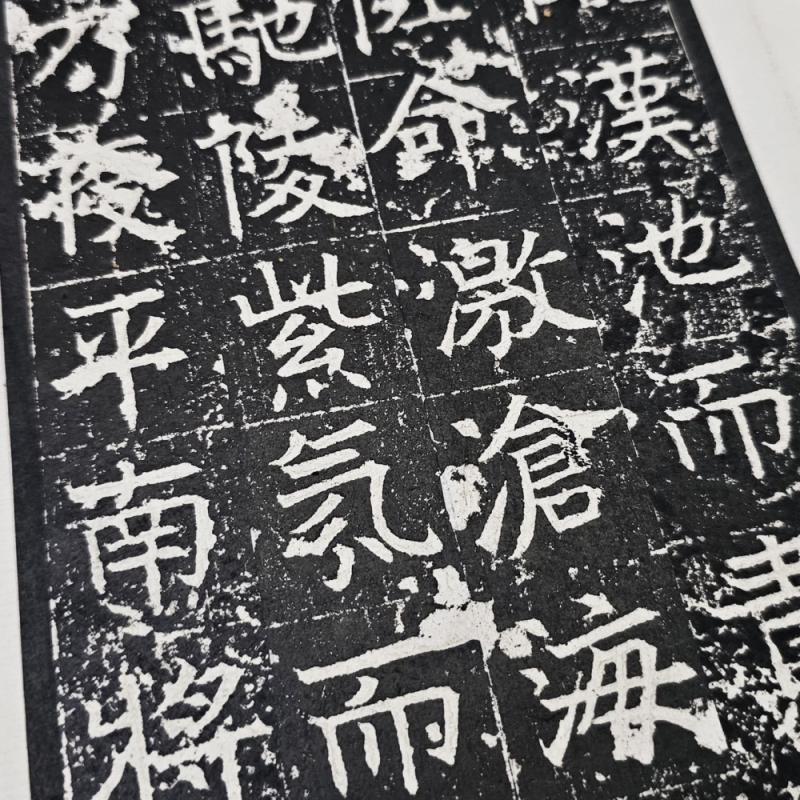 漢池而
命激滄海
馳陵紫氛而
後平南將